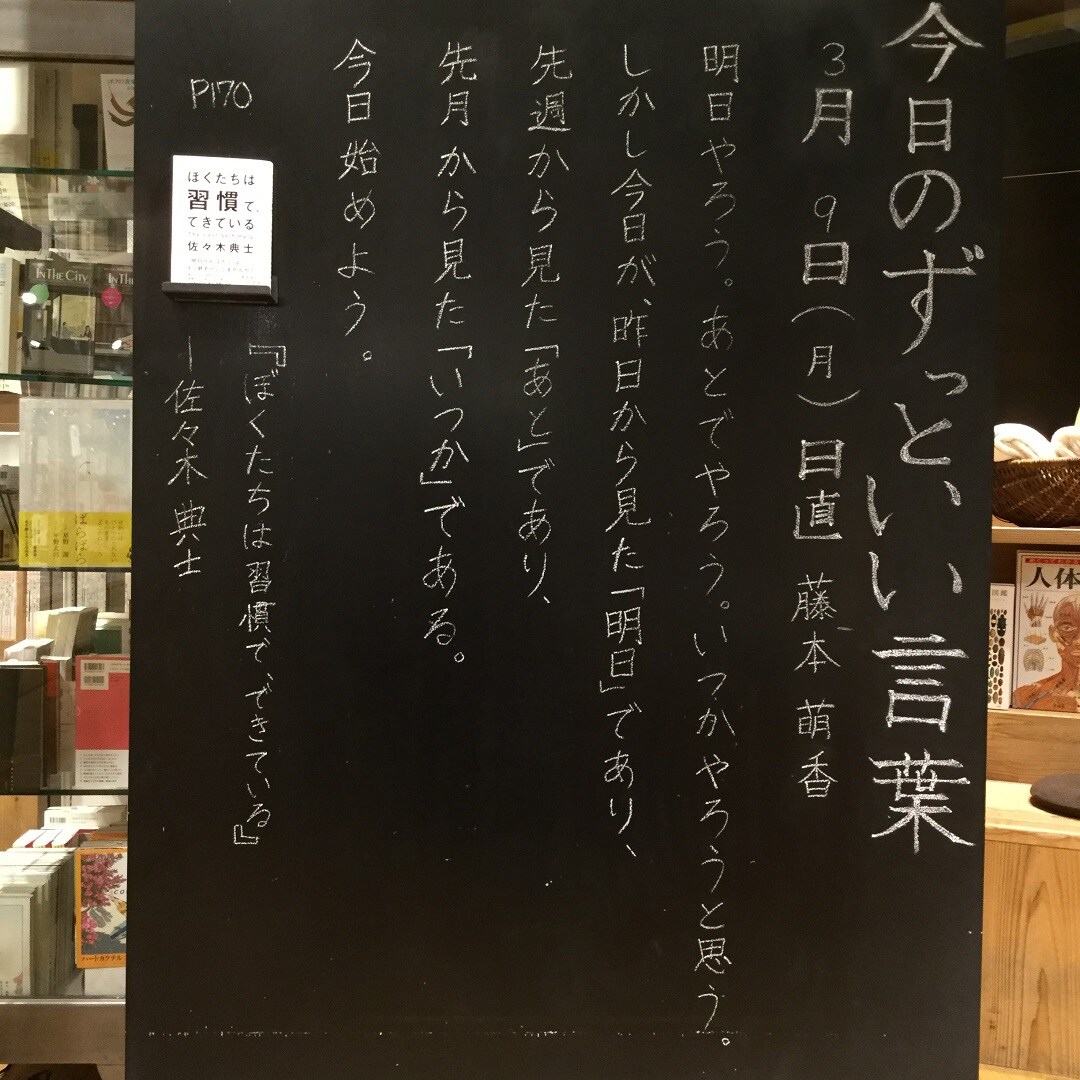 今日のずっと、いい言葉
3月 9日(月) 日直 藤本 萌香
明日やろう。あとでやろう。いつかやろうと思う。
しかし今日が、昨日から見た「明日」であり、
先週から見た「あと」であり、
先月から見た「いつか」である。
今日始めよう。
『ぼくたちは習慣で、できている』
ー佐々木 典士
P170
ぼくたちは
習慣で、
できている
佐々木典士
IN THE CITY
IN THE CITY
ハートカクテル
人体
図鑑